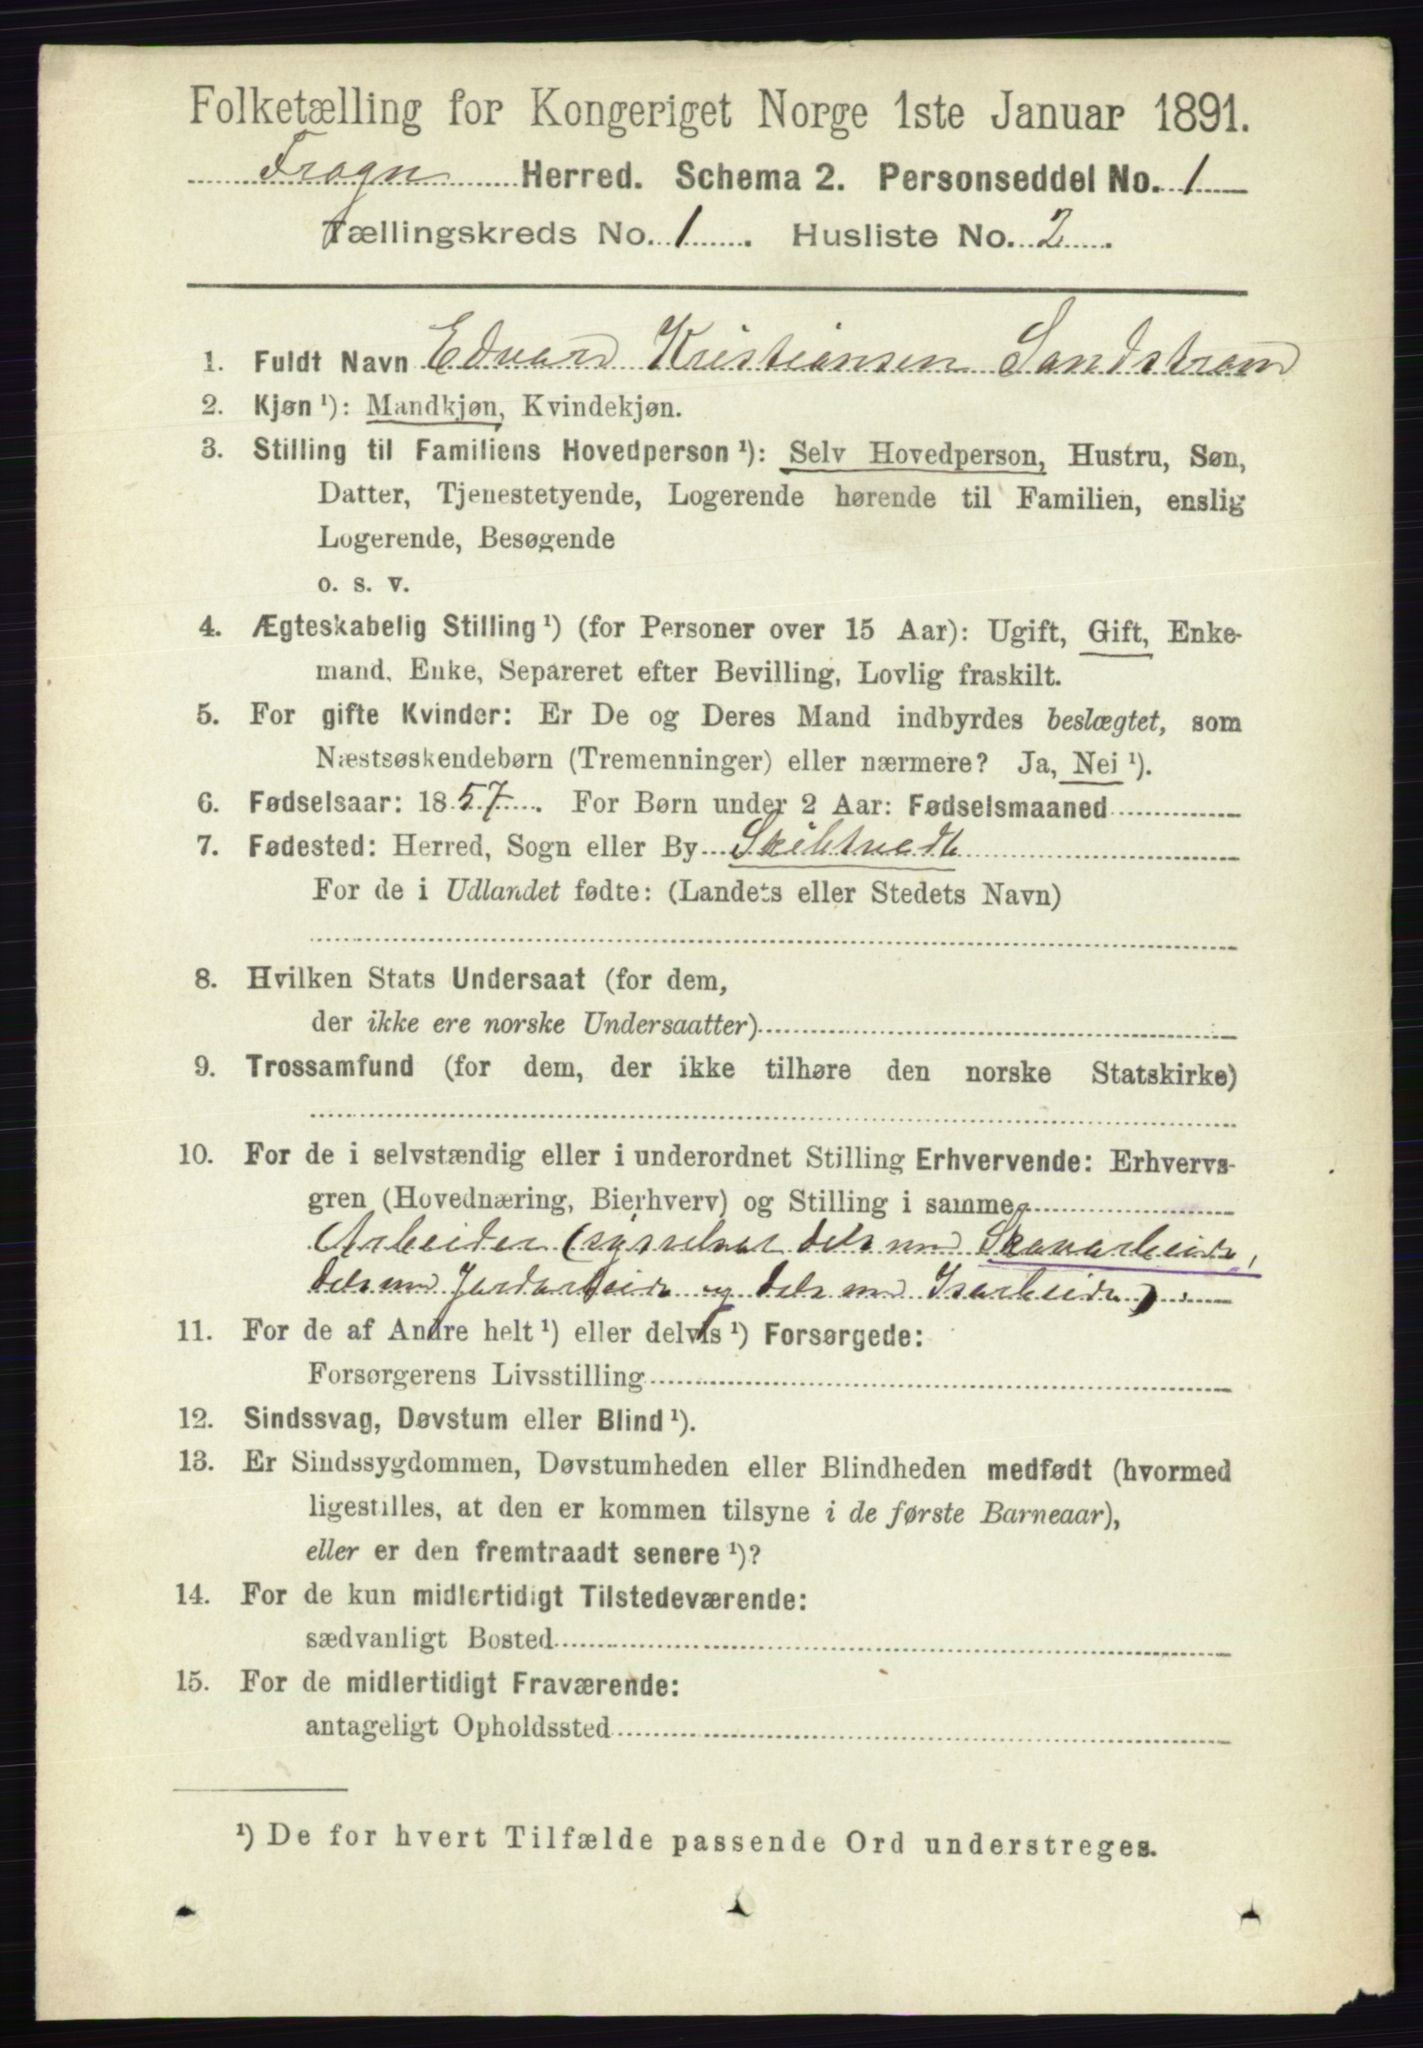 Folketælling for Kongeriget Norge 1ste Januar 1891.
Frogn Herred. Schema 2. Personseddel No. 1
Tællingskreds No. 1. Husliste No. 2.
1. Fuldt Navn Edvard Kristiansen Sandstrøm
2. Kjøn ¹): Mandkjøn, Kvindekjøn.
3. Stilling til Familiens Hovedperson ¹): Selv Hovedperson, Hustru, Søn,
Datter, Tjenestetyende, Logerende hørende til Familien, enslig
Logerende, Besøgende
o. s. v.
4. Ægteskabelig Stilling ¹) (for Personer over 15 Aar): Ugift, Gift, Enke-
mand, Enke, Separeret efter Bevilling, Lovlig fraskilt.
5. For gifte Kvinder: Er De og Deres Mand indbyrdes beslægtet, som
Næstsøskendebørn (Tremenninger) eller nærmere? Ja, Nei ¹).
6. Fødselsaar: 1857. For Børn under 2 Aar: Fødselsmaaned
7. Fødested: Herred, Sogn eller By Skibtvedt
For de i Udlandet fødte: (Landets eller Stedets Navn)
8. Hvilken Stats Undersaat (for dem,
der ikke ere norske Undersaatter)
9. Trossamfund (for dem, der ikke tilhøre den norske Statskirke)
10. For de i selvstændig eller i underordnet Stilling Erhvervende: Erhvervs-
gren (Hovednæring, Bierhverv) og Stilling i samme
Arbeider (sysselsat dels med Skovarbeide,
dels med Jordarbeide og dels med Isarbeide).
11. For de af Andre helt ¹) eller delvis ¹) Forsørgede:
Forsørgerens Livsstilling
12. Sindssvag, Døvstum eller Blind ¹).
13. Er Sindssygdommen, Døvstumheden eller Blindheden medfødt (hvormed
ligestilles, at den er kommen tilsyne i de første Barneaar),
eller er den fremtraadt senere ¹)?
14. For de kun midlertidigt Tilstedeværende:
sædvanligt Bosted
15. For de midlertidigt Fraværende:
antageligt Opholdssted
¹) De for hvert Tilfælde passende Ord understreges.